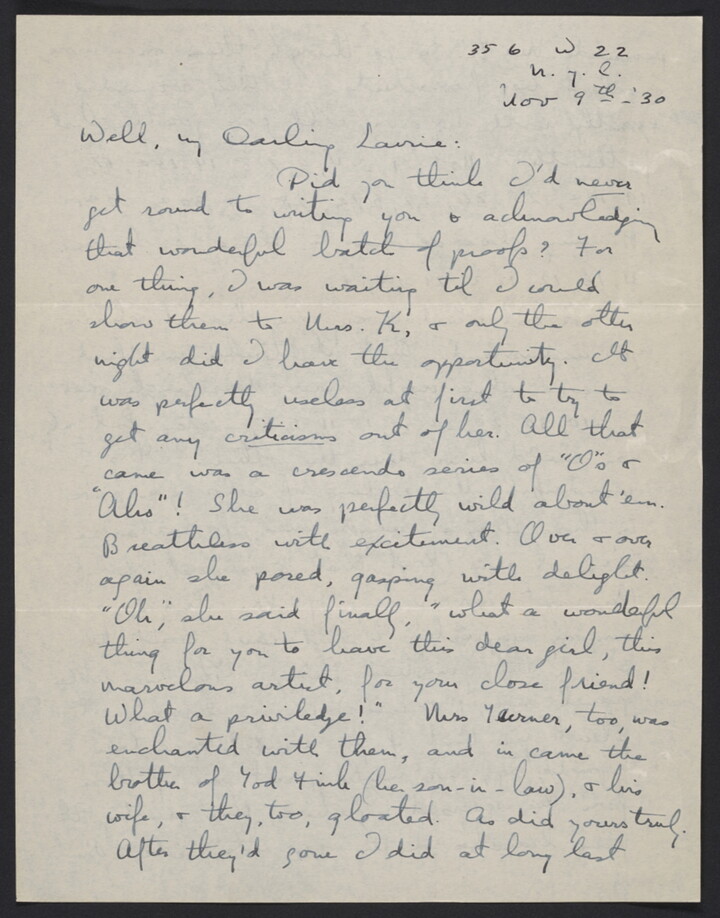 356 W 22
N.Y.C.
Nov 9th - '30
Well, my Darling Laurie:
Did you think I'd never
get round to writing you & acknowledging
that wonderful batch of proofs? For
one thing, I was waiting til I could
show them to Mrs. K, & only the other
night did I have the opportunity. It
was perfectly useless at first to try to
get any criticisms out of her. All that
came was a crescendo series of "O"s &
"Ahs"! She was perfectly wild about 'em.
Breathless with excitement. Over & over
again she pored, gasping with delight.
"Oh", she said finally, "what a wonderful
thing for you to have this dear girl, this
marvelous artist, for your close friend!
What a priviledge!" Mrs Turner, too, was
enchanted with them, and in came the
brother of (her son-in-law), & his
wife, & they, too, gloated. As did yours truly.
After they'd gone I did at long last